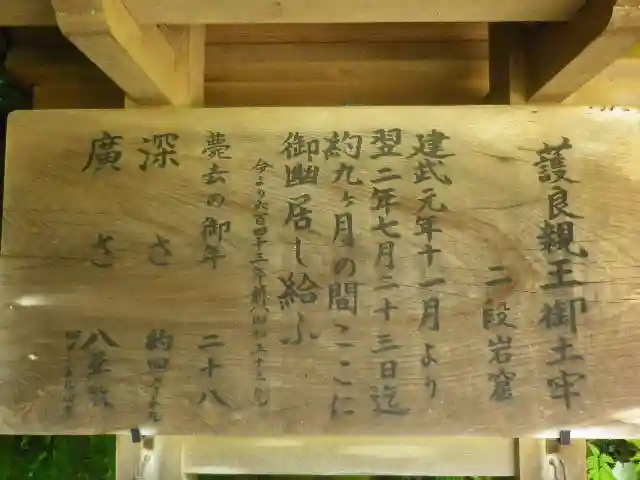 護良親王御土牢
二段岩窟
建武元年十一月より
翌二年七月二十三日迄
約九ヶ月の間ここに
御幽居し給ふ
今より六百四十三年前
薨去の御年 二十八
深さ 約四
廣さ 八畳敷